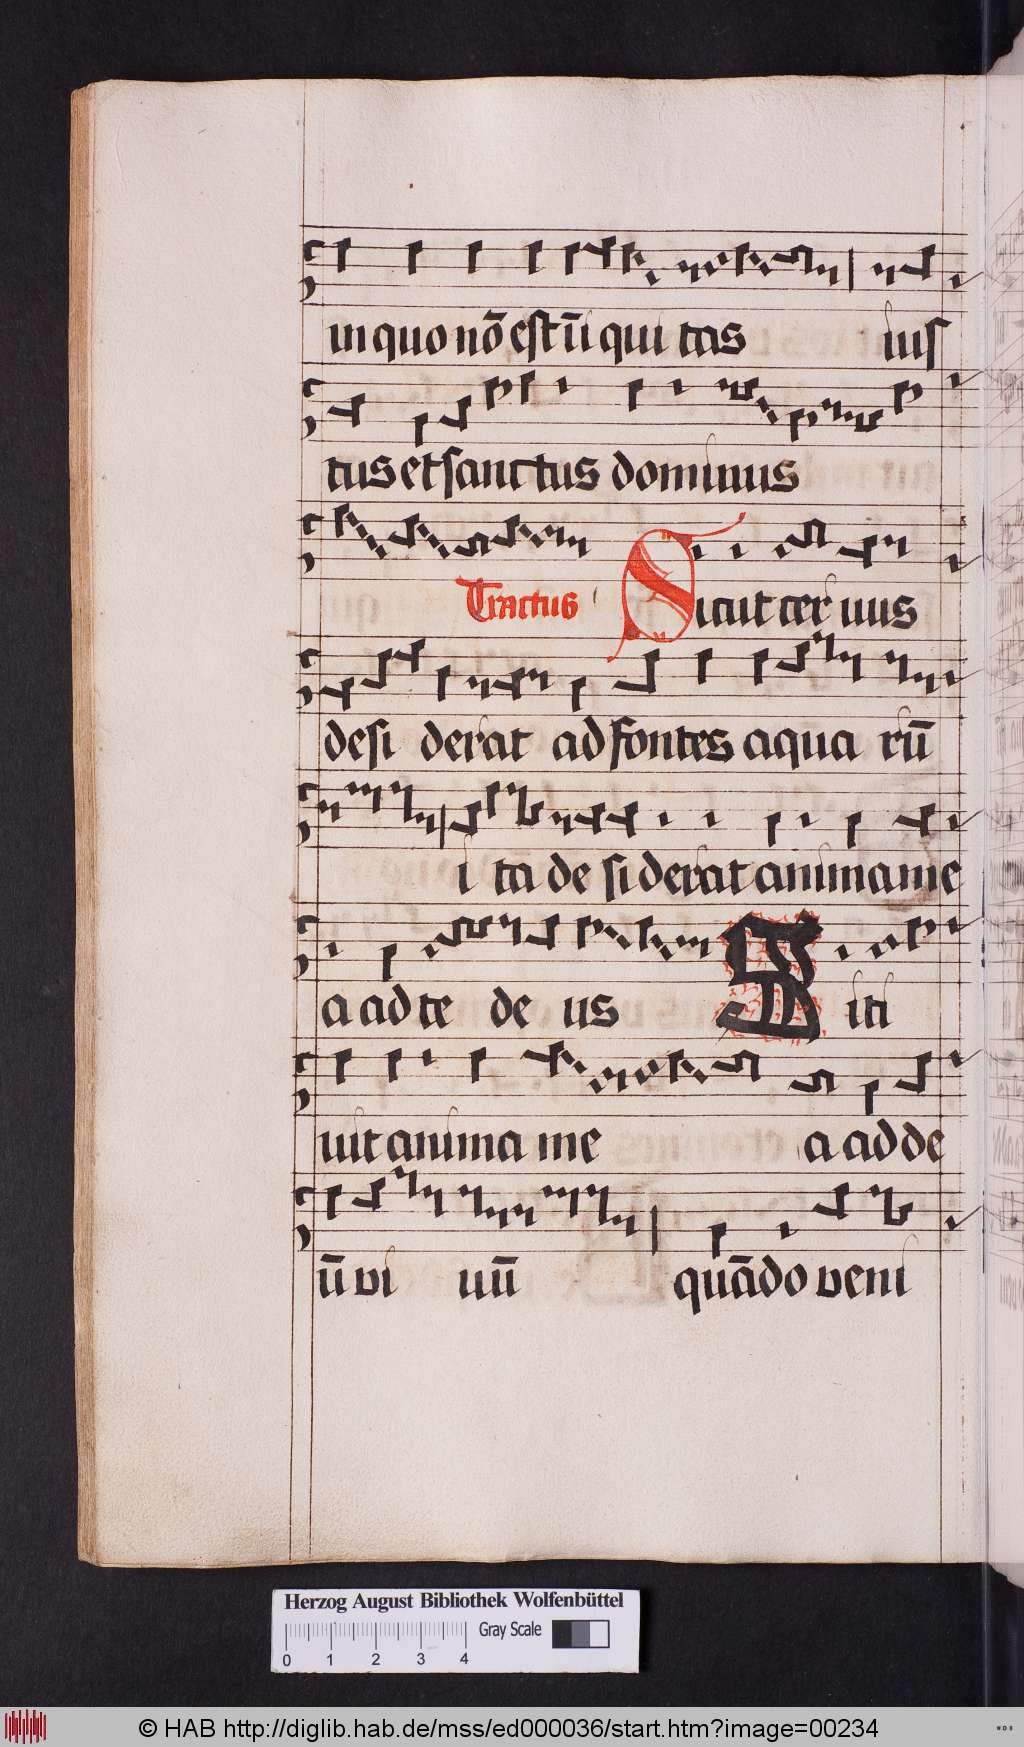 in quo nō est īi qui tas ius
tus et sanctus dominus
Tractus Sicut cer uus
desi derat ad fontes aqua rū
i ta de si derat anima me
a ad te de us Siti
uit anima me a ad de
ū vi uū quādo veni
Herzog August Bibliothek Wolfenbüttel
Gray Scale
0 1 2 3 4
© HAB http://diglib.hab.de/mss/ed000036/start.htm?image=00234